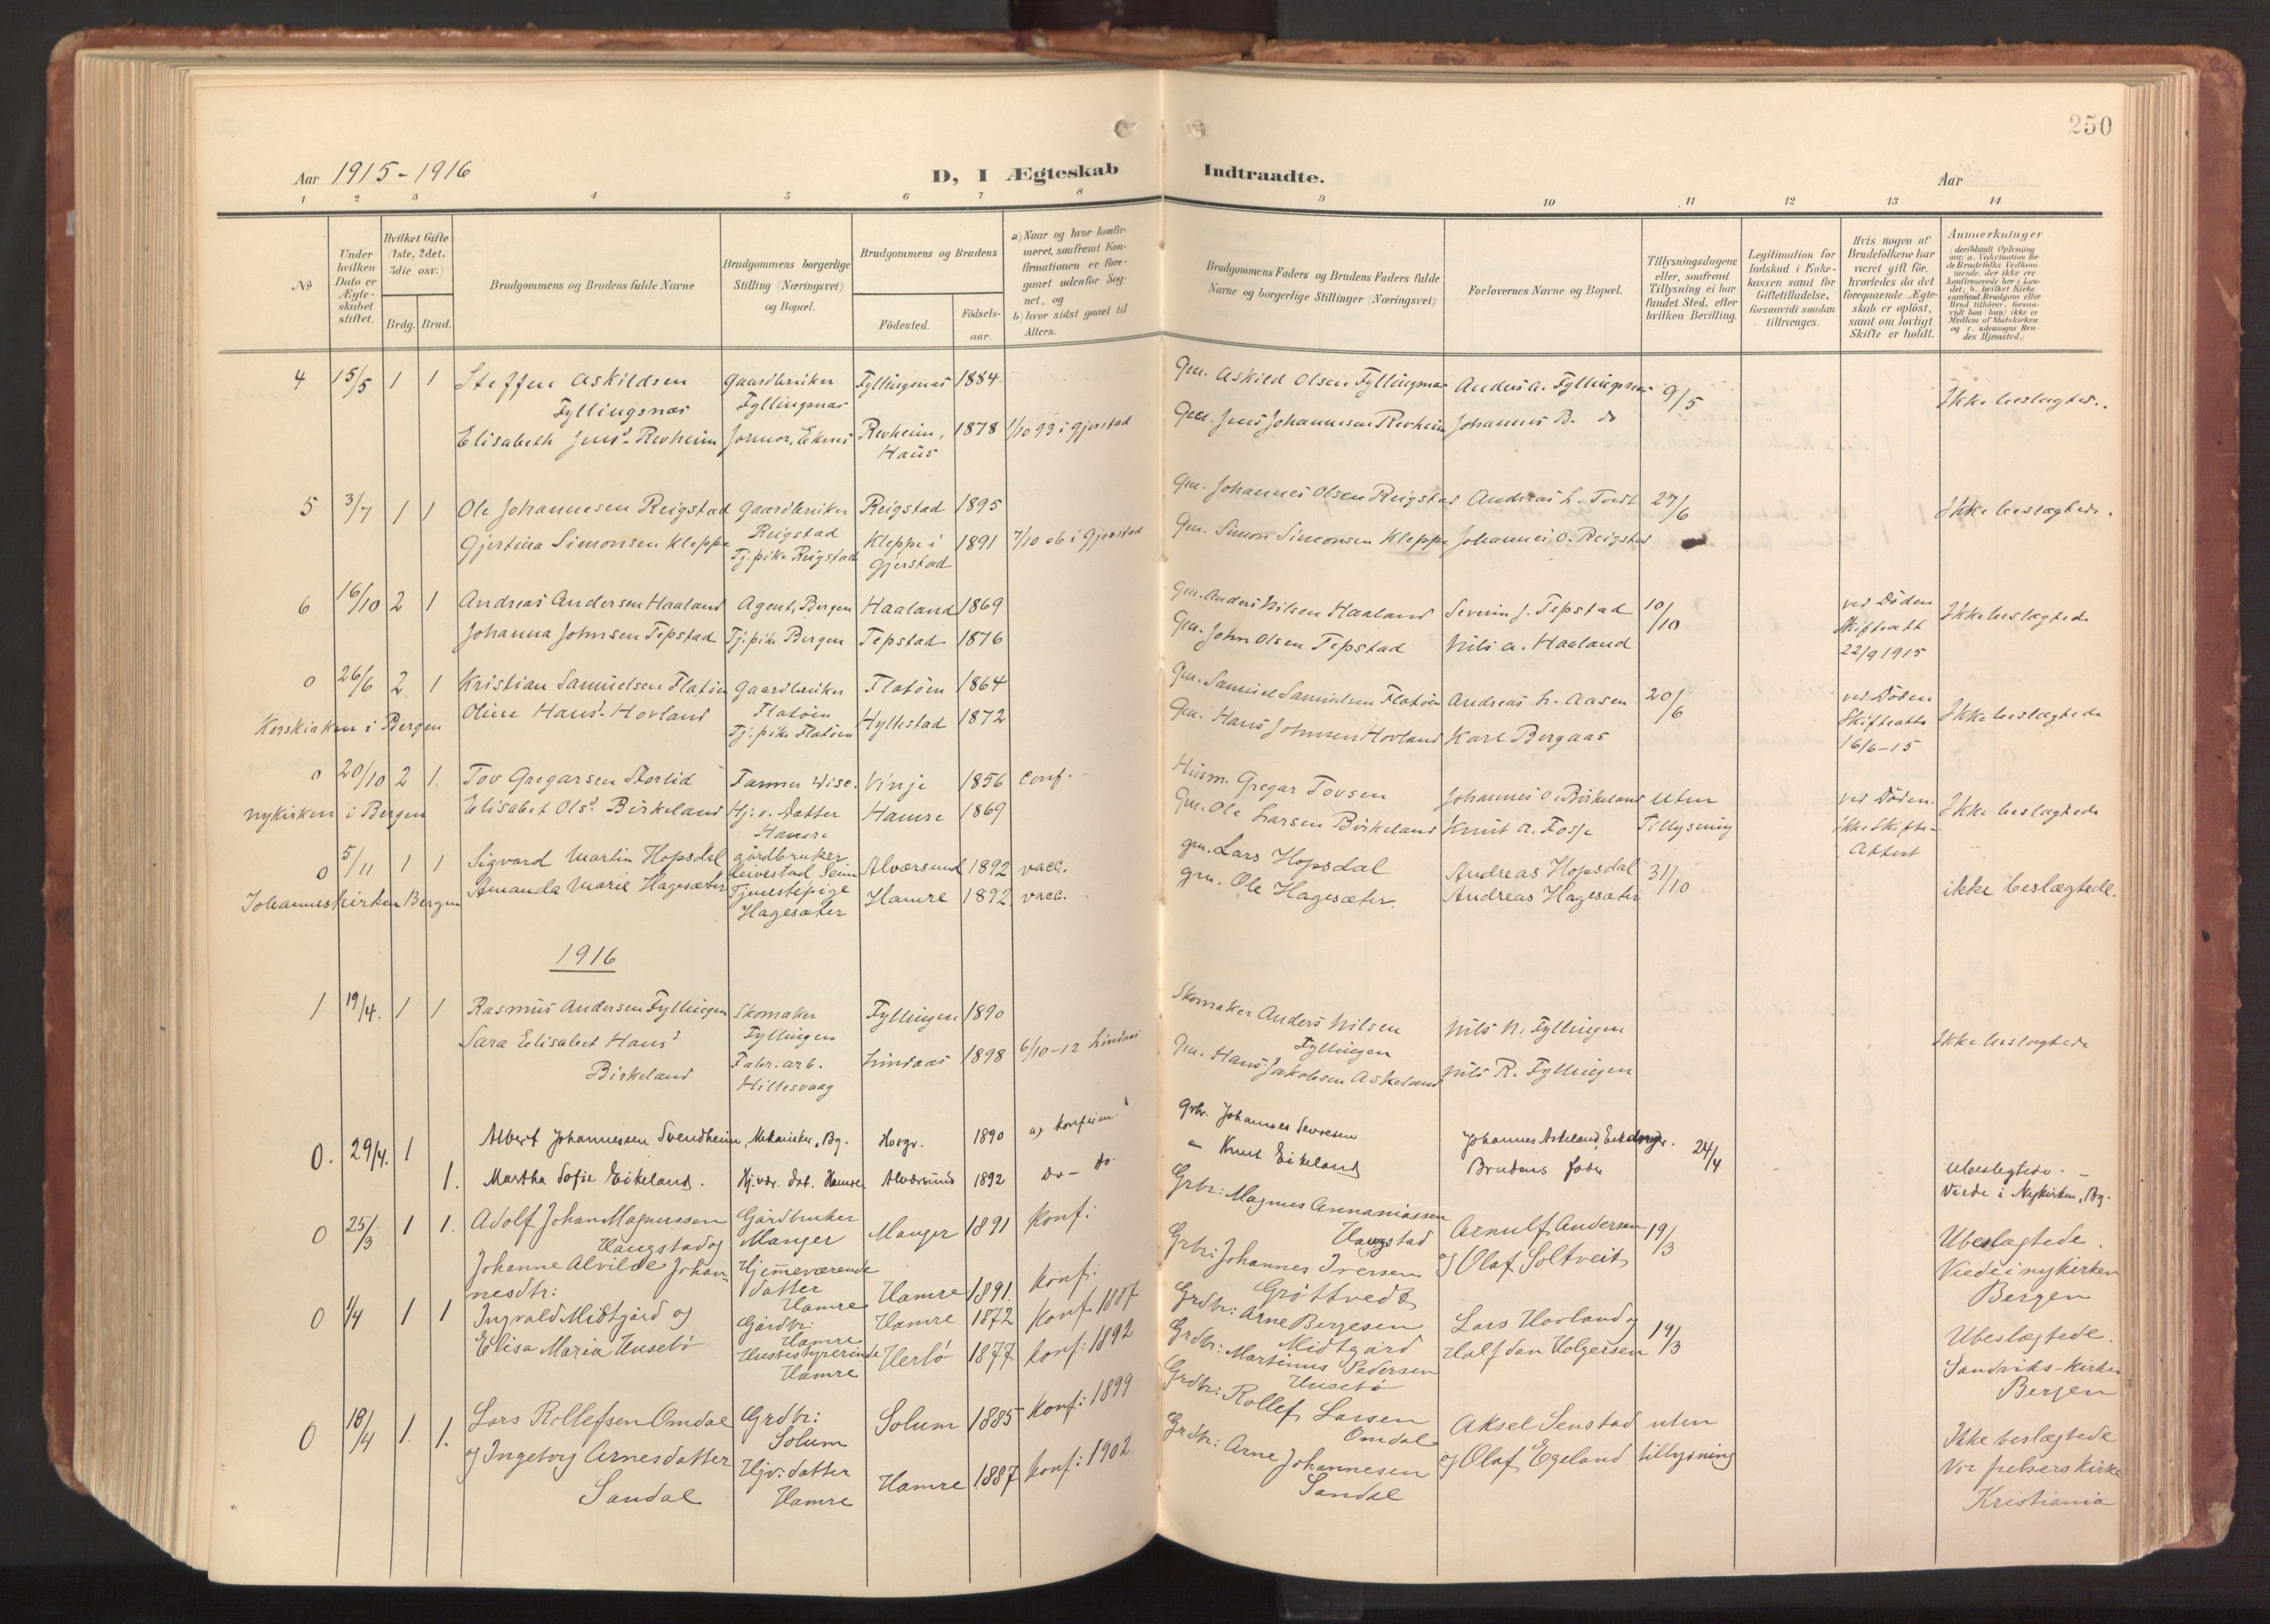 250
Aar 1915-1916
D, I Ægteskab Indtraadte.
Aar
1 2 3 4 5 6 7 8 9 10 11 12 13 14
No
Under hvilken Dato er Ægteskabet stiftet.
Hvilket Gifte (1ste, 2det, 3die osv.)
Brdg. Brud.
Brudgommens og Brudens fulde Navne
Brudgommens borgerlige Stilling (Næringsvei) og Bopæl.
Brudgommens og Brudens
Födested.
Födsels-aar.
a) Naar og hvor konfirmeret, saafremt Konfirmationen er foregaaet udenfor Sognet, og
b) hvor sidst gaaet til Alters.
Brudgommens Faders og Brudens Faders fulde Navne og borgerlige Stillinger (Næringsvei)
Forlovernes Navne og Bopæl.
Tillysningsdagene eller, saafremt Tillysning ei har fundet Sted, efter hvilken Bevilling.
Legitimation for Indskud i Enkekassen samt for Giftetilladelse, forsaavidt saadan tiltrænges.
Hvis nogen af Brudefolkene har været gift för, hvorledes da det foregaaende Ægteskab er oplöst, samt om lovligt Skifte er holdt.
Anmerkninger
4 15/5 1 1 Steffen Askildsen Gaardbruker Fyllingsnæs 1884 Gm. Askild Olsen Fyllingsnæs Anders A. Fyllingsnæs 9/5 Ikke beslægtede.
Fyllingsnæs Fyllingsnæs
Elisabeth Jensd. Revheim Jormor, Eknes Revheim, 1878 1/10 93 i Gjerstad Gm. Jens Johannesen Revheim Johannes B. do
Haus
5 3/7 1 1 Ole Johannesen Reigstad Gaardbruker Reigstad 1895 Gm. Johannes Olsen Reigstad Andreas L. Tvedt 27/6 Ikke beslægtede.
Reigstad
Gjertina Simonsen Kleppe Tj. pike Reigstad Kleppe i Gjerstad 1891 7/10 06 i Gjerstad Gm. Simon Simonsen Kleppe Johannes O. Reigstad
6 16/10 2 1 Andreas Andersen Haaland Agent, Bergen Haaland 1869 Gm. Anders Nilsen Haaland Severin J. Tepstad 10/10 ved Døden Ikke beslægtede
Johanna Johnsen Tepstad Tj. pike Bergen Tepstad 1876 Gm. John Olsen Tepstad Nils A. Haaland Skifteatt 22/9 1915
0 26/6 2 1 Kristian Samuelsen Flatøen Gaardbruker Flatøen 1864 Gm. Samuel Samuelsen Flatøen Andreas L. Aasen 20/6 ved Døden Ikke beslægtede
Korskirken i Bergen Oline Hansd. Hovland Flatøen Tj. pike Flatøen Hyllestad 1872 Gm. Hans Johnsen Hovland Karl Bergaas Skifteatte 16/6-15
0 20/10 2 1. Tov Gregarsen Storlid Farmer Wisc. Vinje 1856 conf. Husm. Gregar Tovsen Johannes O. Birkeland uten ved Døden. Ikke beslægtede
Nykirken i Bergen Elisabet Olsd. Birkeland Hj. v. Datter Hamre Hamre 1869 Gm. Ole Larsen Birkeland Knut A. Fosse Tillysning Ikke Skifte-Attest
0 5/11 1 1 Sigvard Martin Hopsdal gårdbruker Alversund 1892 vacc. gm. Lars Hopsdal Andreas Hopsdal 31/10 ikke beslægtede.
Johanneskirken Bergen Amanda Marie Hagesæter Tjenestepige Hagesæter Hamre 1892 vacc. gm. Ole Hagesæter. Andreas Hagesæter
1916
1 19/4. 1 1 Rasmus Andersen Fyllingen Skomaker Fyllingen Fyllingen 1890 Skomaker Anders Nilsen Fyllingen Nils N. Fyllingen Ikke beslægtede
Sara Elisabet Hansd. Birkeland Fabr. arb. Hillesvaag Lindaas 1898 6/10-12 Lindaas Gm. Hans Jakobsen Askeland Nils R. Fyllingen
0. 29/4. 1 Albert Johannessen Svendheim, Mekaniker, Bg. Hosgr. 1890 Grbr. Johannes Johannes Askeland, 24/4
1. Martha Sofie Eikeland. Hj. vær. dat. Hamre. Alversund 1892 do- do - Knut Eikeland Brudens fader Ubeslegtede. - Viede i Nykirken, Bg.
0 25/3 1 1. Adolf Johan Magnussen Gårdbruker Manger 1891 konf: Grbr: Magnus Annaniassen Haugstad Arnulf Andersen 19/3 Ubeslægtede.
Haugstad og Manger
Johanne Alvilde Johannesdtr: Hjemmeværende datter Hamre Hamre 1891. konf: Grbr: Johannes Iversen Grøttvedt og Olaf Soltveit Viede i nykirken Bergen
0 1/4 1 1 Ingvald Midtgård og Gårdbr: Hamre Hamre 1872 konf. 1887 Grdbr: Arne Bergesen Midtgård Lars Hovland og 19/3 Ubeslægtede.
Elisa Maria Husebø Husbestyrerinde Hamre Herlø 1877 konf: 1892 Grdbr: Martinus Pedersen Husebø Halfdan Holgersen Sandviks-kirken Bergen
0 18/4 1. 1. Lars Rollefsen Omdal Grdbr: Solum Solum 1885 konf: 1899 Grdbr: Rollef Larsen Omdal Aksel Senstad uten Ikke beslægtede
og Ingeborg Arnesdatter Sandal Hjv: datter Hamre Hamre 1887 konf: 1902. Grdbr: Arne Johannesen Sandal og Olaf Egeland tillysning Vor frelsers kirke Kristiania